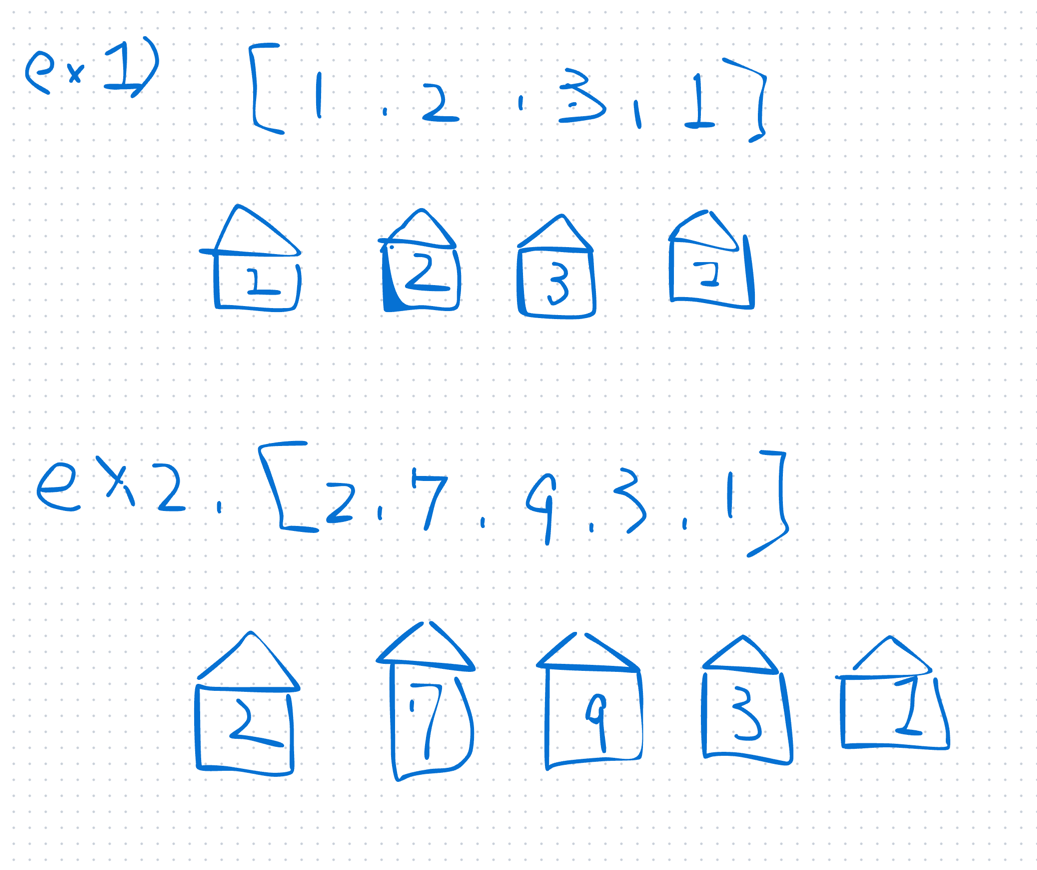 ex1) [1, 2, 3, 1]
1 2 3 1
ex2. [2, 7, 9, 3, 1]
2 7 9 3 1